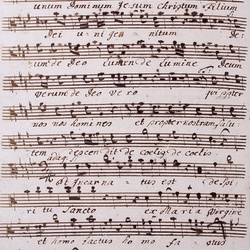 unum Dominum Jesum Christum filium
Dei u ni ge ni tum De
um de Deo lumen de lumine Deum
verum de Deo vero
nos homines et propter nostram salu
tem descendit de coelis de coelis
adag:
incarna tus est de Spi
ri tu Sancto ex Maria Virgine
et homo factus ho mo fa ctus